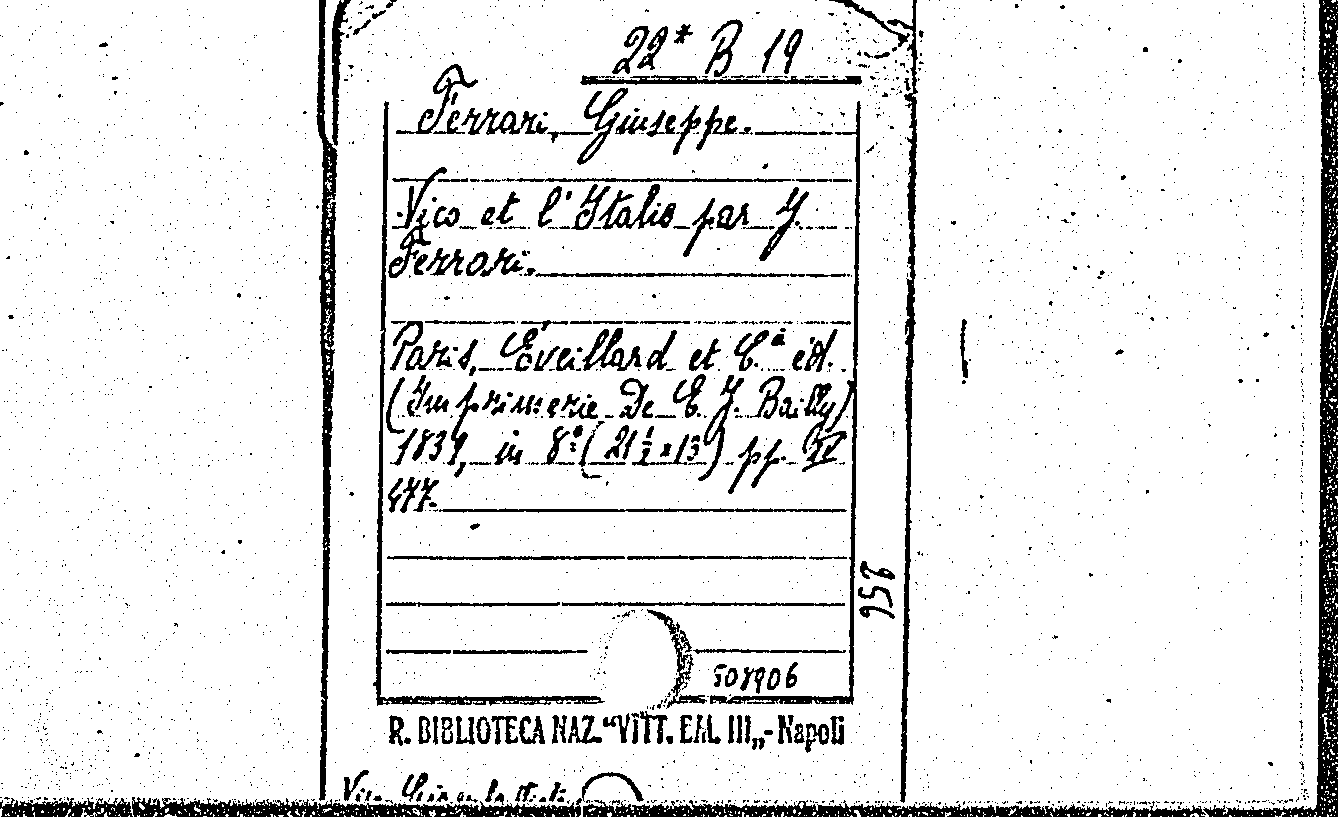 22* B 19
Ferrari, Giuseppe.
Vico et l'Italie par J.
Ferrari.
Paris, Éveillard et C.ª éd.
(Imprimerie De E. J. Bailly)
1839, in 8º (21½ x 13) pp. IV
477.
956
508906
R. BIBLIOTECA NAZ. "VITT. EM. III„ - Napoli